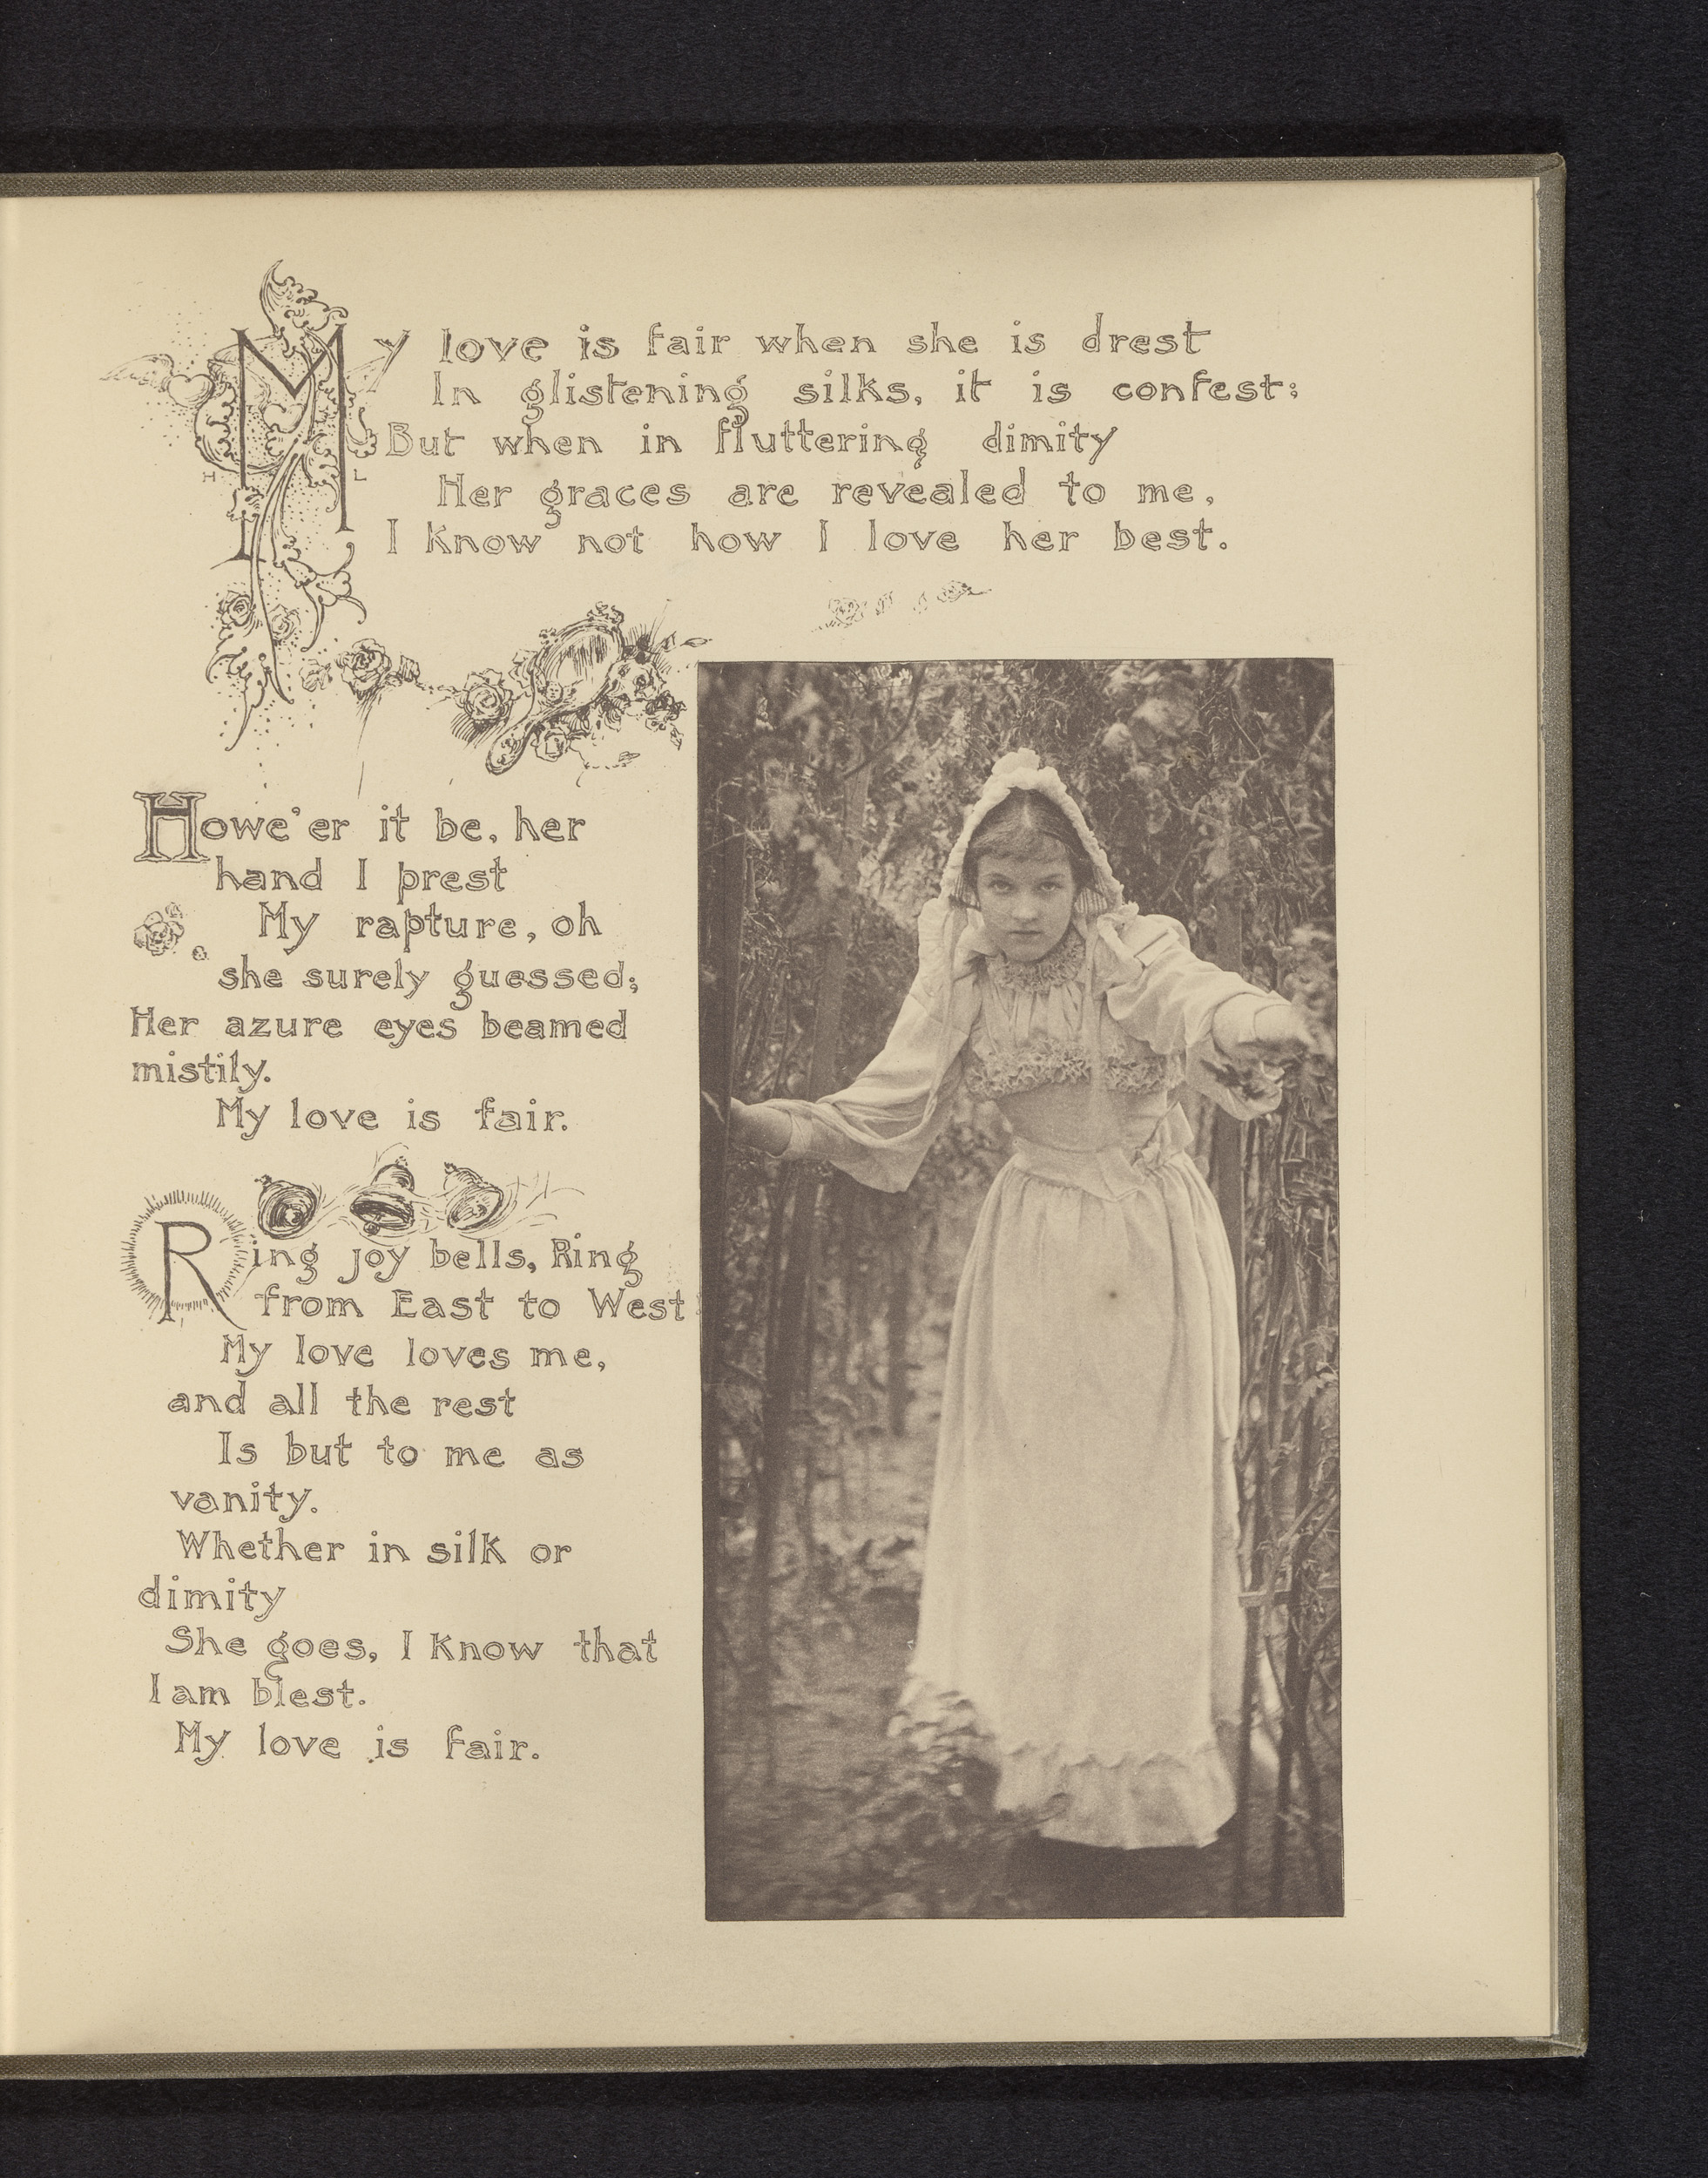 My love is fair when she is drest
In glistening silks, it is confest:
But when in fluttering dimity
Her graces are revealed to me,
I know not how I love her best.
H L
Howe'er it be, her
hand I prest
My rapture, oh
she surely guessed;
Her azure eyes beamed
mistily.
My love is fair.
Ring joy bells, Ring
from East to West
My love loves me,
and all the rest
Is but to me as
vanity.
Whether in silk or
dimity
She goes, I know that
I am blest.
My love is fair.